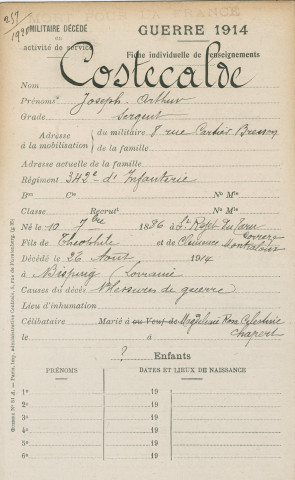 257
1920
MILITAIRE DÉCÉDÉ
en
activité de service
GUERRE 1914
Fiche individuelle de renseignements
Costecalde
Nom
Prénoms Joseph-Arthur
Grade Sergent
Adresse à la mobilisation
du militaire 8 rue Cartier Bresson
de la famille
Adresse actuelle de la famille
Régiment 342e d'Infanterie
Bon Cie No Mle
Classe Recrut No Mle
Né le 10 7bre 1886 à St Rapt du Tarn
Fils de Théophile et de Clémence
Décédé le 26 Août 1914
à Bisping (Lorraine)
Causes du décès Blessures de guerre
Lieu d'inhumation
Célibataire Marié à ou Veuf de Magdeleine Rose Célestine
le à Chapert
? Enfants
PRÉNOMS DATES ET LIEUX DE NAISSANCE
1o 19
2o 19
3o 19
4o 19
5o 19
6o 19